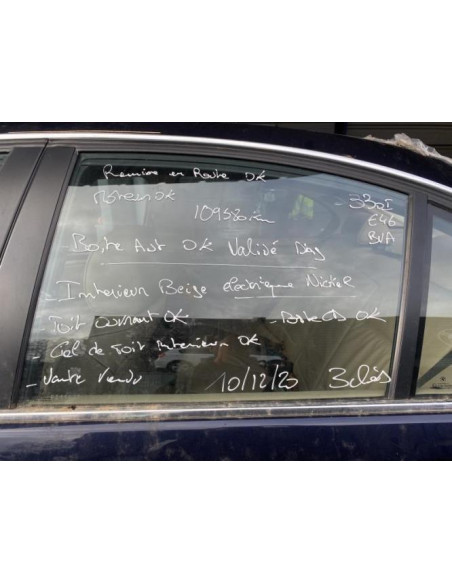 Remise en Route OK
Moteur OK
- 330I
109580 km
E46
BVA
Boite Aut OK Validé Diag
- Interieur Beige électrique Nickel
Toit ouvrant OK
- Boite CD OK
- Ciel de Toit Interieur OK
- Jante Vendu
10/12/25
3 clés